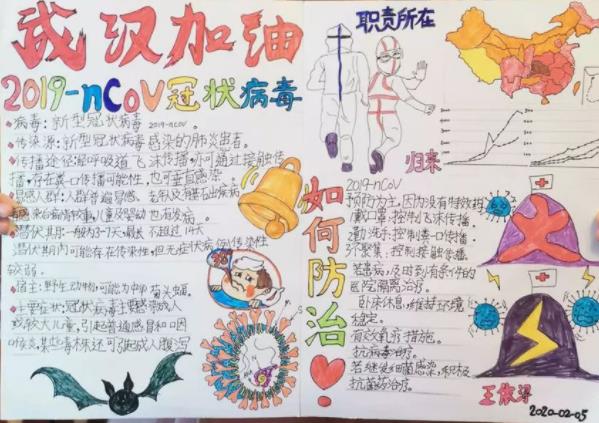 武汉加油
2019-nCoV冠状病毒
病毒:新型冠状病毒 2019-nCoV。
传染源:新型冠状病毒感染的肺炎患者。
传播途径:经呼吸道飞沫传播,亦可通过接触传
播,存在粪口传播可能性,也可垂直感染。
易感人群:人群普遍易感。老年人及有基础疾病
者感染后病情较重,儿童及婴幼儿也有发病。
潜伏期:一般为3-7天,最长不超过14天
潜伏期内可能存在传染性,但无症状病例传染性
较弱。
宿主:野生动物,可能为中华菊头蝠。
主要症状:冠状病毒主要感染成人
或较大儿童,引起普通感冒和口因
某些毒株还可引起成人腹泻
职责所在
归来
如何防治
2019-nCoV
预防为主,因为没有特效药
戴口罩:控制飞沫传播。
勤洗手:控制粪口传播。
不聚集:控制接触传播
若患病,及时到有条件的
医院隔离治疗。
卧床休息,维持环境
稳定。
有效氧疗措施。
抗病毒治疗。
若继发细菌感染,积极
抗菌药治疗。
2020-02-05